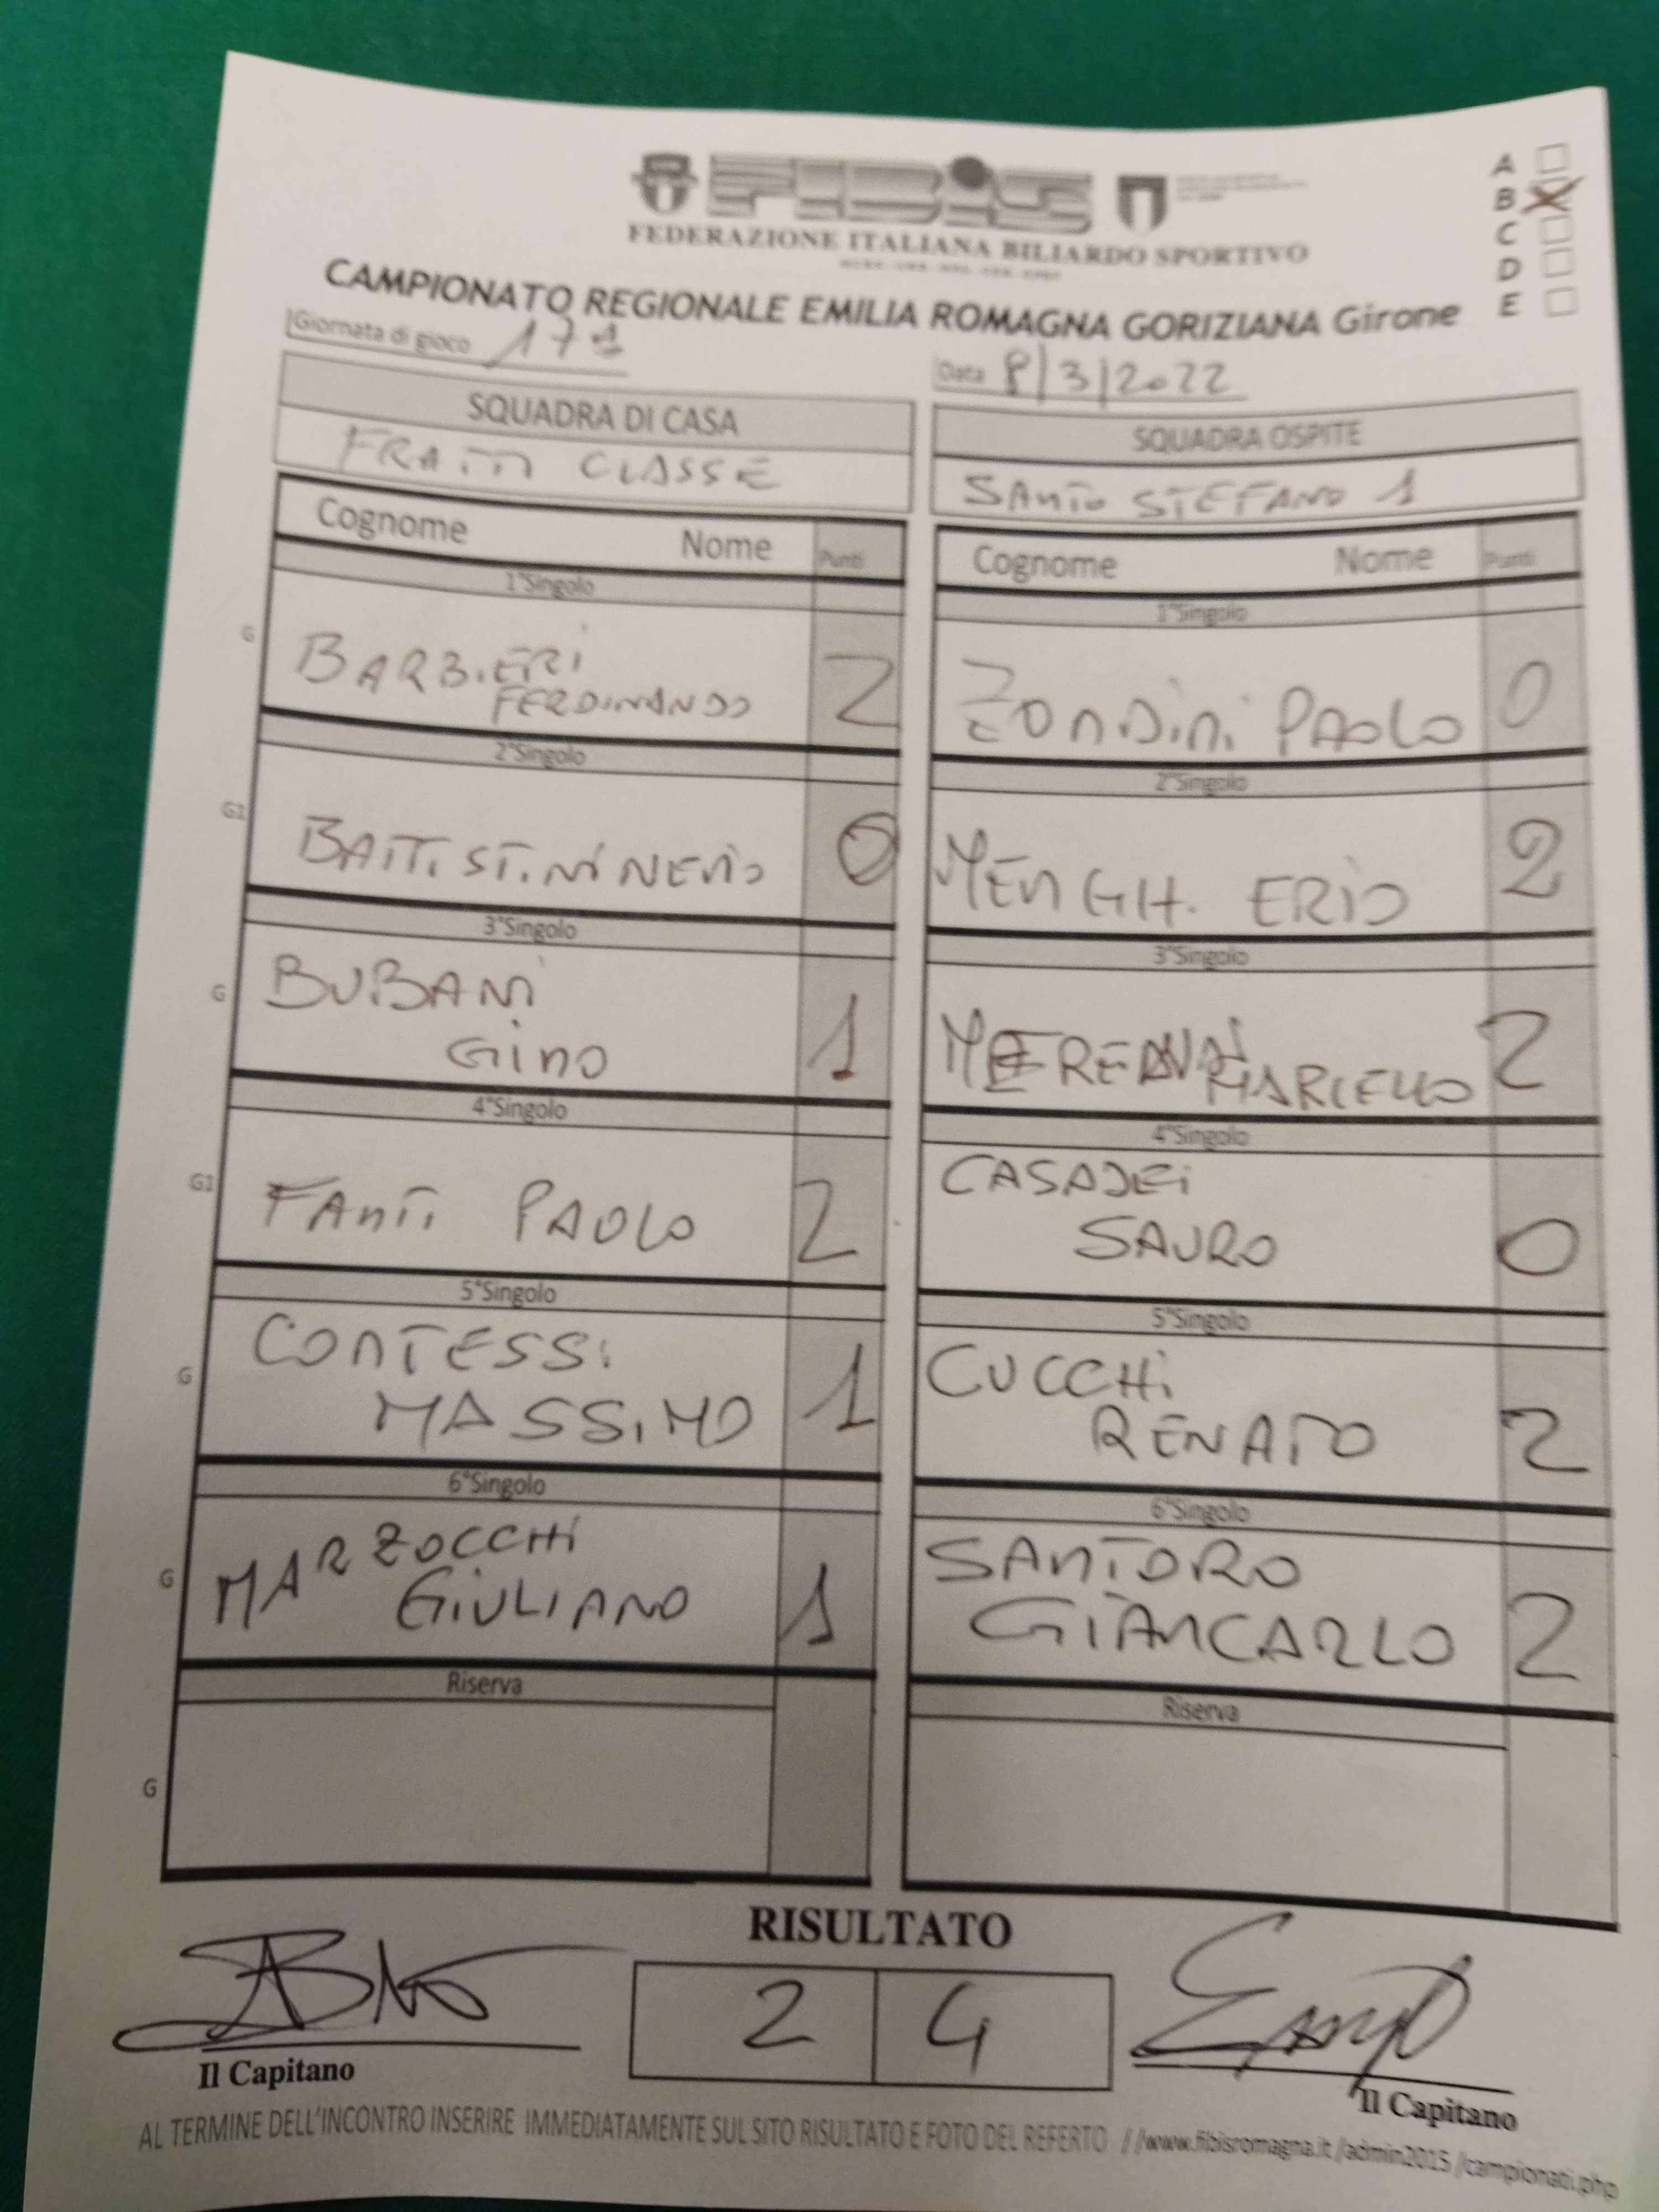 FIBiS
FEDERAZIONE ITALIANA BILIARDO SPORTIVO
CAMPIONATO REGIONALE EMILIA ROMAGNA GORIZIANA Girone
A
B X
C
D
E
Giornata di gioco 17ª
Data 8/3/2022
SQUADRA DI CASA
FRATTI CLASSE
SQUADRA OSPITE
SANTO STEFANO 1
Cognome Nome Punti
Cognome Nome Punti
1°Singolo
1°Singolo
G
BARBIERI
FERDINANDO 2
ZONDINI PAOLO 0
2°Singolo
2°Singolo
G1
BATTISTINI NERIO 0
MENGHI ERIO 2
3°Singolo
3°Singolo
G
BUBANI
GINO 1
MARCELLO 2
4°Singolo
4°Singolo
G1
FANTI PAOLO 2
CASADEI
SAURO 0
5°Singolo
5°Singolo
G
CONTESSI
MASSIMO 1
CUCCHI
RENATO 2
6°Singolo
6°Singolo
G
MARZOCCHI
GIULIANO 1
SANTORO
GIANCARLO 2
Riserva
Riserva
G
RISULTATO
2 4
Il Capitano
Il Capitano
AL TERMINE DELL'INCONTRO INSERIRE IMMEDIATAMENTE SUL SITO RISULTATO E FOTO DEL REFERTO //www.fibisromagna.it/admin2015/campionati.php